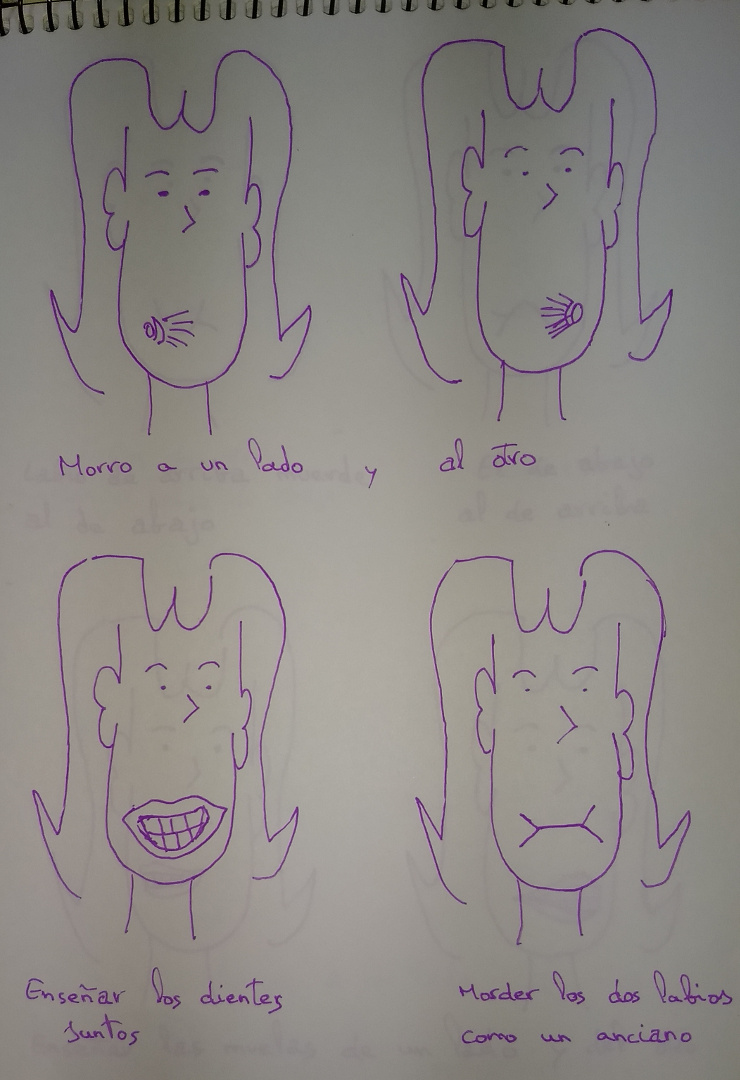 Morro a un lado y al otro
Enseñar los dientes
juntos
Morder los dos labios
como un anciano